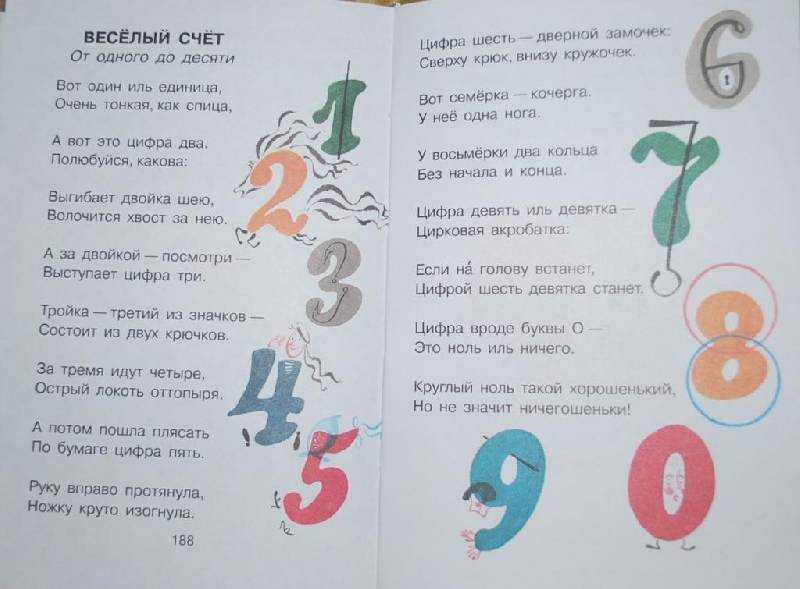 ВЕСЁЛЫЙ СЧЁТ
От одного до десяти
Вот один иль единица,
Очень тонкая, как спица,
А вот это цифра два.
Полюбуйся, какова:
Выгибает двойка шею,
Волочится хвост за нею.
А за двойкой — посмотри —
Выступает цифра три.
Тройка — третий из значков —
Состоит из двух крючков.
За тремя идут четыре,
Острый локоть оттопыря.
А потом пошла плясать
По бумаге цифра пять.
Руку вправо протянула,
Ножку круто изогнула.
188
1
2
3
4
5
Цифра шесть — дверной замочек:
Сверху крюк, внизу кружочек.
Вот семёрка — кочерга.
У неё одна нога.
У восьмёрки два кольца
Без начала и конца.
Цифра девять иль девятка —
Цирковая акробатка:
Если на́ голову встанет,
Цифрой шесть девятка станет.
Цифра вроде буквы О —
Это ноль иль ничего.
Круглый ноль такой хорошенький,
Но не значит ничегошеньки!
6
7
8
9
0